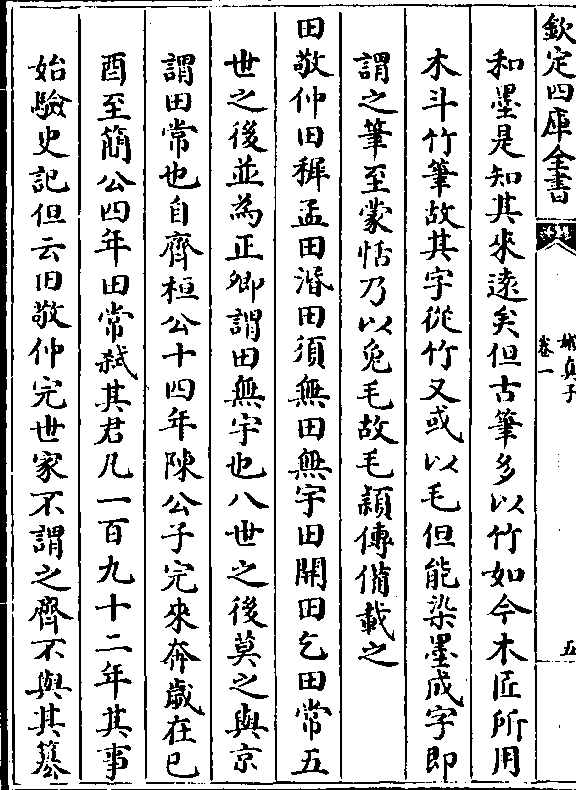 欽定四庫全書
嬾真子
卷一
五
和墨是知其來遠矣但古筆多以竹如今木匠所用
木斗竹筆故其字從竹又或以毛但能染墨成字即
謂之筆至蒙恬乃以兔毛故毛頴傳備載之
田敬仲田穉孟田湣田須無田無宇田開田乞田常五
世之後並為正卿謂田無宇也八世之後莫之與京
謂田常也自齊桓公十四年陳公子完來奔歲在已
酉至簡公四年田常弑其君凡一百九十二年其事
始驗史記但云田敬仲完世家不謂之齊不與其簒